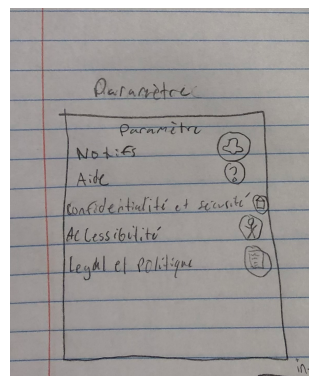 Paramètre
Paramètre
Notifs
Aide
?
Confidentialité et sécurité
Accessibilité
Legal et Politique
in-